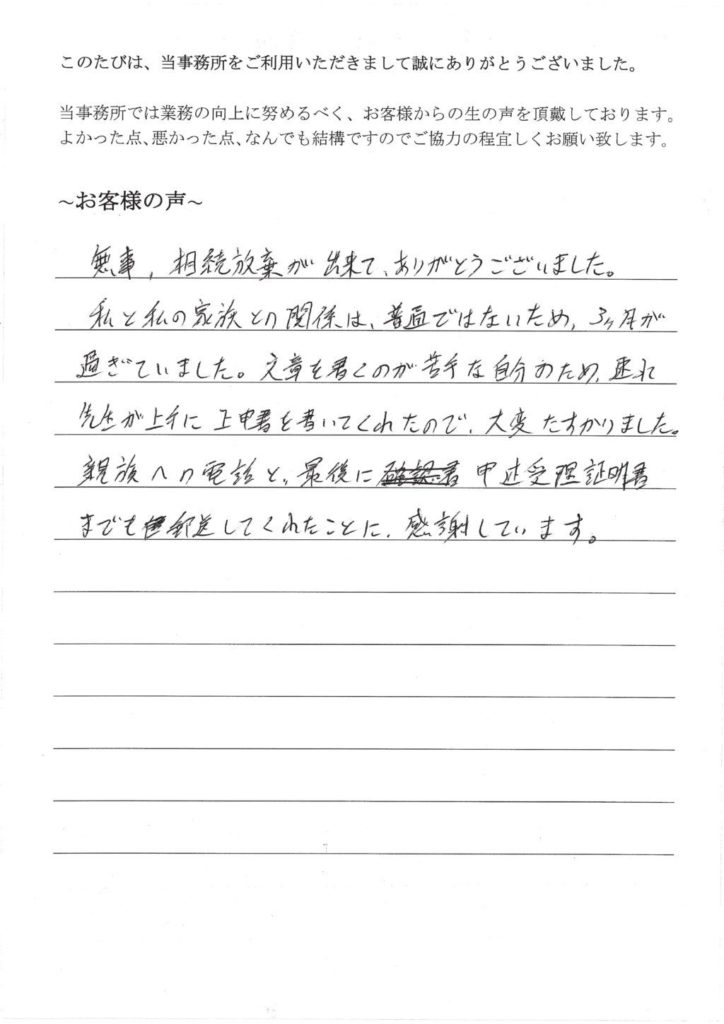 このたびは、当事務所をご利用いただきまして誠にありがとうございました。
当事務所では業務の向上に努めるべく、お客様からの生の声を頂戴しております。
よかった点、悪かった点、なんでも結構ですのでご協力の程宜しくお願い致します。
~お客様の声~
無事、相続放棄が出来て、ありがとうございました。
私と私の家族との関係は、普通ではないため、3ヶ月が
過ぎていました。文章を書くのが苦手な自分のため、
先生が上手に上申書を書いてくれたので、大変たすかりました。
親族への電話と、最後に 申述受理証明書
までも郵送してくれたことに、感謝しています。